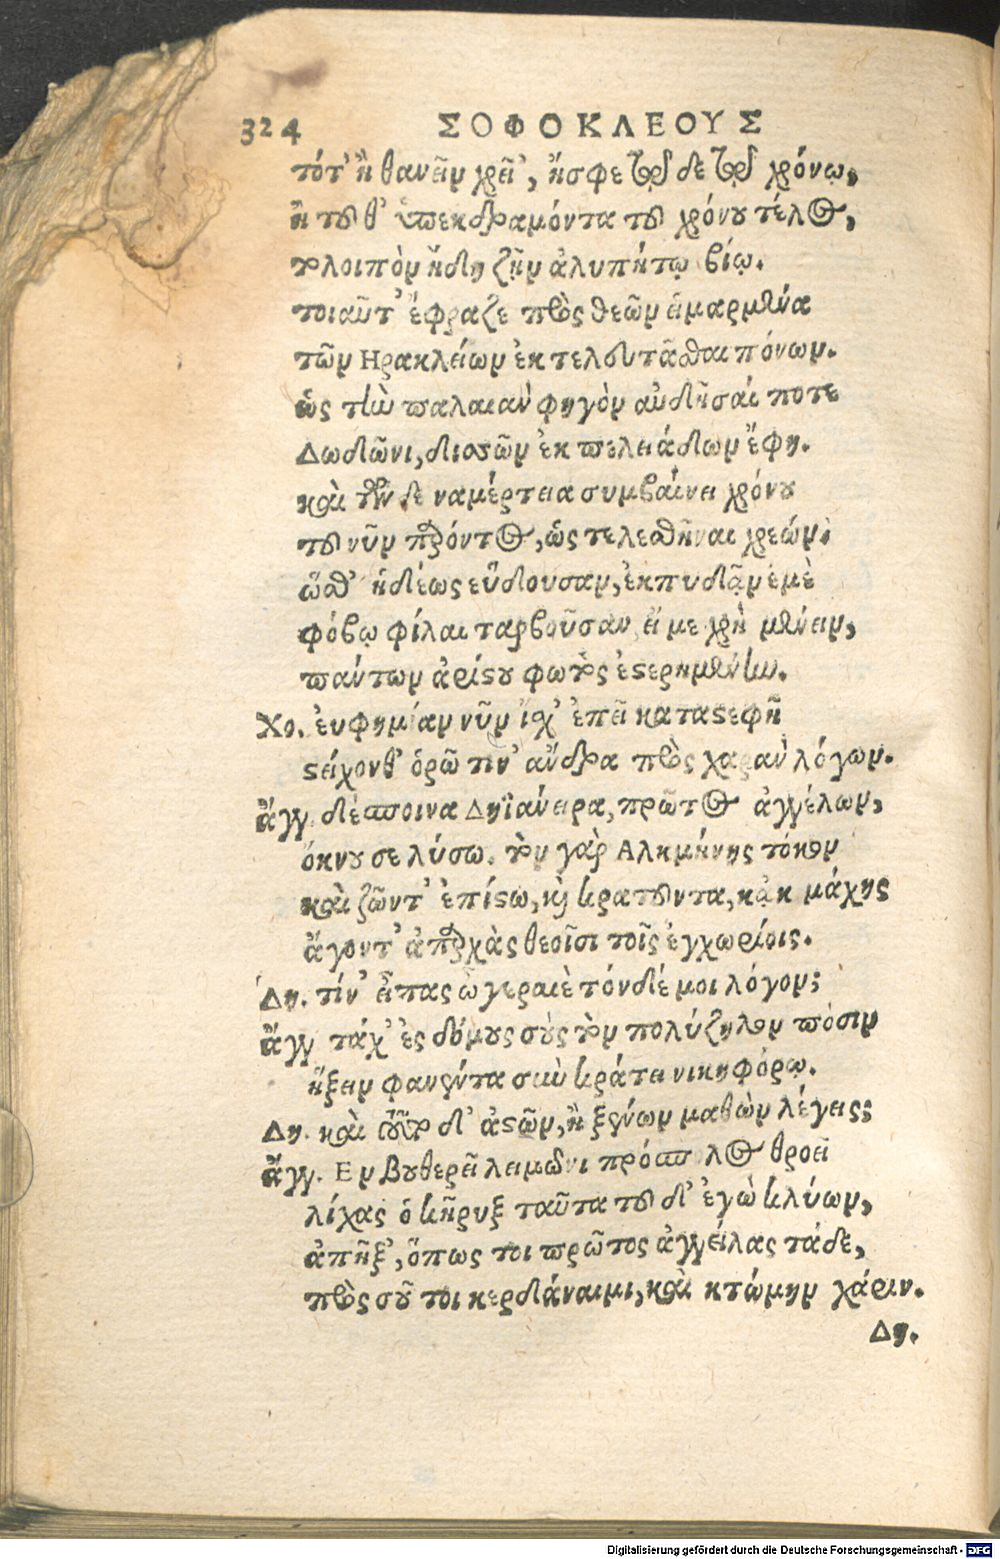 324 ΣΟΦΟΚΛΕΟΥΣ
τότ' ἢ θανεῖν χρεῖ', ἥσφε τῷδε τῷ χρόνῳ,
ἢ τοῦθ' ὑπεκδραμόντα τοῦ χρόνου τέλος,
τολοιπὸν ἤδη ζῇν ἀλυπήτῳ βίῳ.
τοιαῦτ' ἔφραζε πρὸς θεῶν εἱμαρμένα
τῶν Ηρακλείων ἐκτελευτᾶσθαι πόνων.
ὡς τὴν παλαιὰν φηγὸν αὐδῆσαί ποτε
Δωδῶνι, δισσῶν ἐκ πελειάδων ἔφη.
καὶ τῶνδε ναμέρτεια συμβαίνει χρόνου
τοῦ νῦν παρόντος, ὡς τελεσθῆναι χρεών.
ὥσθ' ἡδέως εὕδουσαν, ἐκπηδᾷν ἐμὲ
φόβῳ φίλαι ταρβοῦσαν, εἴ με χρὴ μένειν,
πάντων ἀρίστου φωτὸς ἐστερημένην.
Χο. ἐυφημίαν νῦν ἴσχ' ἐπεὶ καταστεφῆ
στείχονθ' ὁρῶ τιν' ἄνδρα πρὸς χαρὰν λόγων.
ἄγγ. δέσποινα Δηϊάνειρα, πρῶτος ἀγγέλων,
ὄκνου σε λύσω. τὸν γὰρ Αλκμήνης τόκον
καὶ ζῶντ' ἐπίστω, καὶ κρατοῦντα, κᾀκ μάχης
ἄγοντ' ἀπαρχὰς θεοῖσι τοῖς ἐγχωρίοις.
Δη. τίν' εἶπας ὦ γεραιὲ τόνδέ μοι λόγον;
ἄγγ τάχ' ἐς δόμους σοὺς τὸν πολύζηλον πόσιν
ἥξειν φανέντα σὺν κράτει νικηφόρῳ.
Δη. καὶ τοῦ τόδ' ἀστῶν, ἢ ξένων μαθὼν λέγεις;
ἄγγ. Εν βουθερεῖ λειμῶνι πρόσπολος θροεῖ
λίχας ὁ κῆρυξ ταῦτα τοῦ δ' ἐγὼ κλύων,
ἀπῆξ', ὅπως τοι πρῶτος ἀγγείλας τάδε,
πρὸς σοῦ τοι κερδάναιμι, καὶ κτώμην χάριν.
Δη.
Digitalisierung gefördert durch die Deutsche Forschungsgemeinschaft - DFG